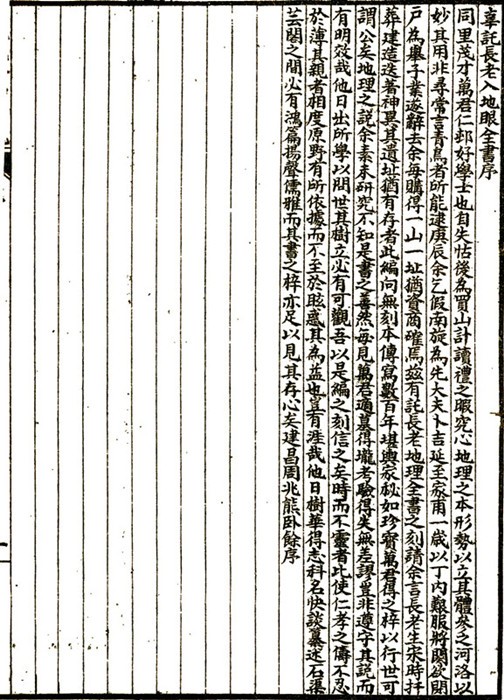 辜託長老入地眼全書序
同里茂才萬君仁邨好學士也自失怙後為買山計讀禮之暇究心地理之本形勢以立其體參之河洛以
妙其用非尋常言青烏者所能逮庚辰余乞假南旋為先大夫卜吉延至家甫一歲以丁內艱服將闋欲閉
戶為舉子業遂辭去余每購得一山一址猶資商確焉茲有託長老地理全書之刻請余言長老生宋時扦
葬建造迭著神異其遺址猶有存者此編向無刻本傳寫數百年堪輿家秘如珍寶萬君得之梓以行世可
謂公矣地理之說余素未研究不知是書之善然每見萬君適墓得壠考驗得失無差謬豈非遵守其說而
有明效哉他日出所學以問世其樹立必有可觀吾以是編之刻信之矣時而不靈者比使仁孝之儔不忍
於薄其親者相度原野有所依據而不至於眩惑其為益也豈有涯哉他日樹華得志科名快談纂述石渠
芸閣之間必有鴻篇揚聲儒雅而其書之梓亦足以見其存心矣建昌周兆熊臥餘序